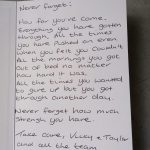 Never forget:
How far you've come.
Everything you have gotten
through. All the times
you have pushed on even
when you felt you couldn't.
All the mornings you got
out of bed no matter
how hard it was.
All the times you wanted
to give up but you got
through another day.
Never forget how much
strength you have.
Take care, Vicky & Taylor
and all the team